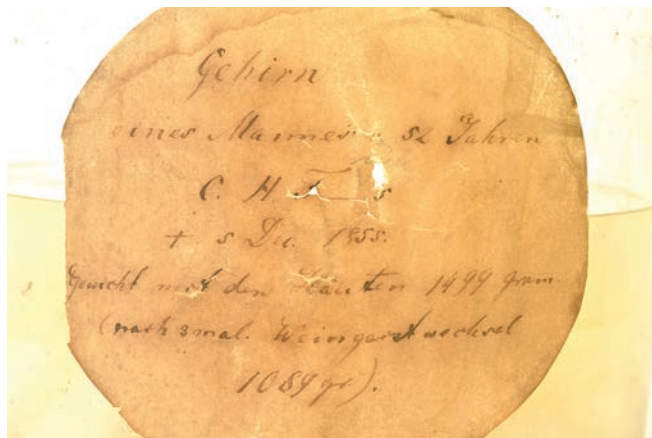 Gehirn
eines Mannes v. 52 Jahren
C. H. F s
+ 5 Dec. 1855.
Gewicht mit den Häuten 1499 gram.
(nach 3 mal. Weingeistwechsel
1089 gr).